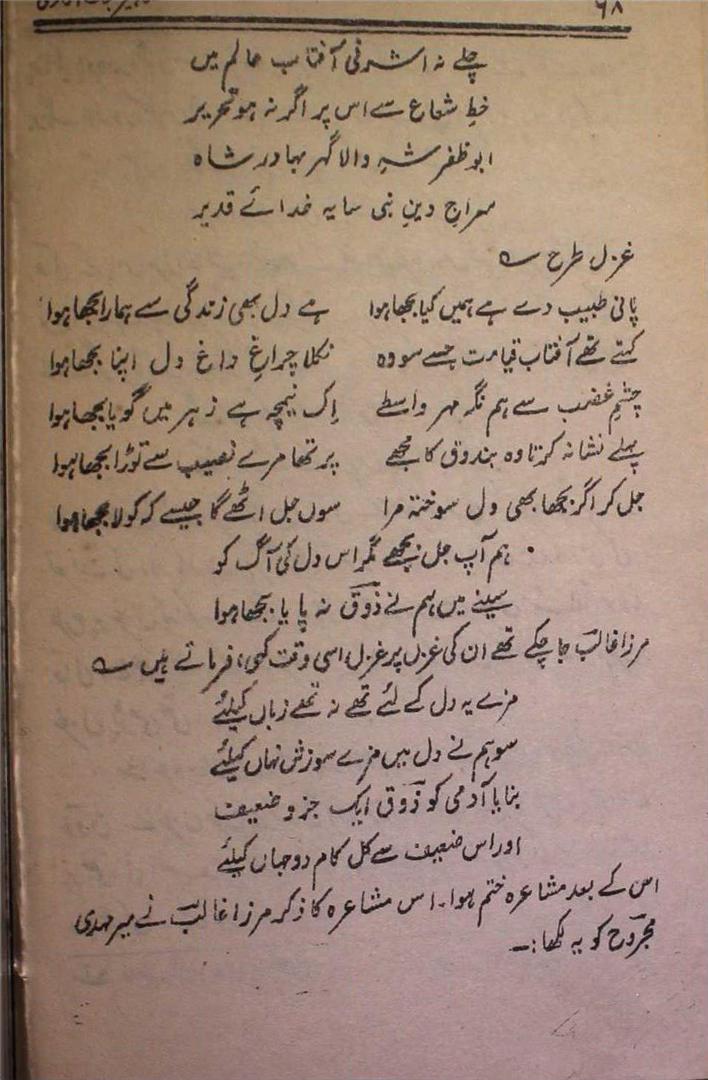 ۶۸
چلے نہ اشرفی آفتاب عالم میں
خطِ شعاع سے اس پر اگر نہ ہو تحریر
ابوظفر شہِ والا گہر بہادر شاہ
سراجِ دینِ نبی سایہ خدائے قدیر
غزل طرح ؎
پانی طبیب دے ہے ہمیں کیا بجھا ہوا ہے دل بھی زندگی سے ہمارا بجھا ہوا
کہتے تھے آفتاب قیامت جسے سو وہ نکلا چراغِ داغ دل اپنا بجھا ہوا
چشمِ غضب سے ہم نگہ مہر واسطے اِک نیمچہ ہے زہر میں گویا بجھا ہوا
پہلے نشانہ کرتا وہ بندوق کا مجھے پر تھا مرے نصیب سے توڑا بجھا ہوا
جل کر اگر بجھا بھی دل سوختہ مرا سوں جل اٹھے گا جیسے کہ کولا بجھا ہوا
ہم آپ جل بجھے مگر اس دل کی آگ کو
سینے میں ہم نے ذوق نہ پایا بجھا ہوا
مرزا غالب جا چکے تھے ان کی غزل پر غزل اسی وقت کہی، فرماتے ہیں ؎
مزے یہ دل کے لئے تھے نہ تھے زباں کیلئے
سو ہم نے دل میں مزے سوزش نہاں کیلئے
بنایا آدمی کو ذوق ایک جزو ضعیف
اور اس ضعیف سے کل کام دو جہاں کیلئے
اس کے بعد مشاعرہ ختم ہوا۔ اس مشاعرہ کا ذکر مرزا غالب نے میر مہدی
مجروح کو یہ لکھا:۔